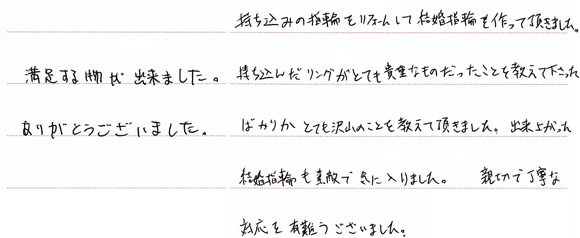 持ち込みの指輪をリフォームして結婚指輪を作って頂きました。
持ち込んだリングがとても貴重なものだったことを教えて下さった
ばかりかとても沢山のことを教えて頂きました。出来上がった
結婚指輪も素敵で気に入りました。 親切で丁寧な
対応を有難うございました。
満足する物が出来ました。
ありがとうございました。